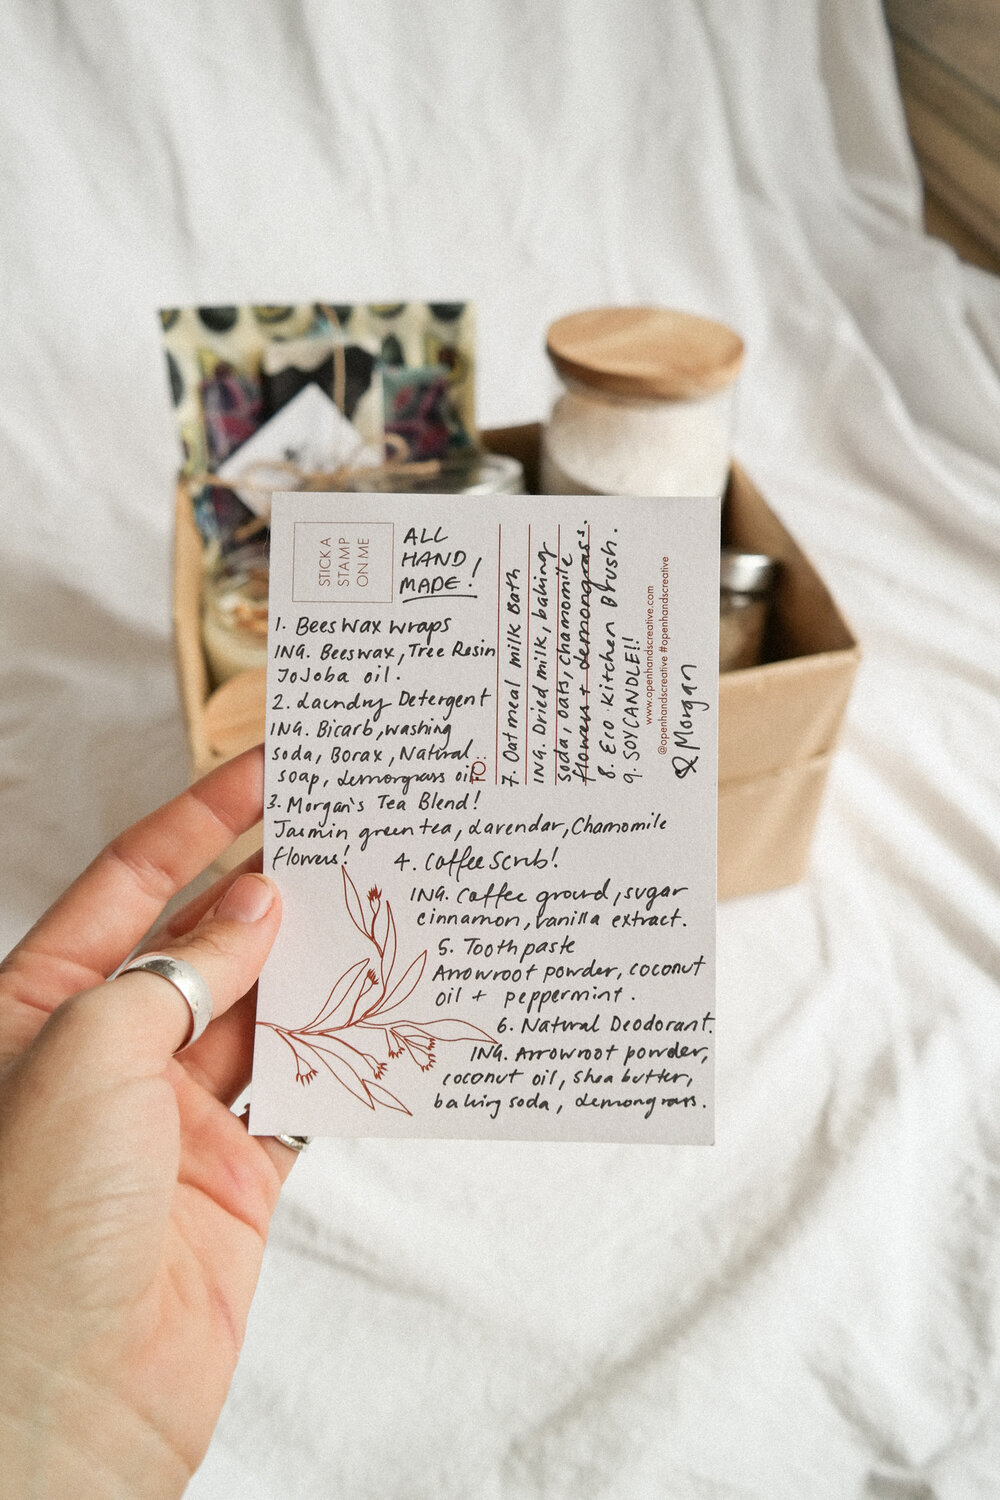 STICK A
STAMP
ON ME
ALL
HAND
MADE!
1. Beeswax wraps
ING. Beeswax, Tree Resin
JoJoba oil.
2. Laundry Detergent
ING. Bicarb, washing
soda, Borax, Natural
soap, Lemongrass oil
TO:
3. Morgan's Tea Blend!
Jasmin green tea, Lavendar, Chamomile
flowers!
4. Coffee Scrub!
ING. Coffee ground, sugar
cinnamon, vanilla extract.
5. Toothpaste
Arrowroot powder, coconut
oil + peppermint.
6. Natural Deodorant.
ING. Arrowroot powder,
coconut oil, shea butter,
baking soda, Lemongrass.
7. Oatmeal milk Bath
ING. Dried milk, baking
soda, oats, chamomile
flowers + Lemongrass.
8. Eco Kitchen Brush.
9. SOY CANDLE!!
www.openhandscreative.com
@openhandscreative #openhandscreative
Morgan